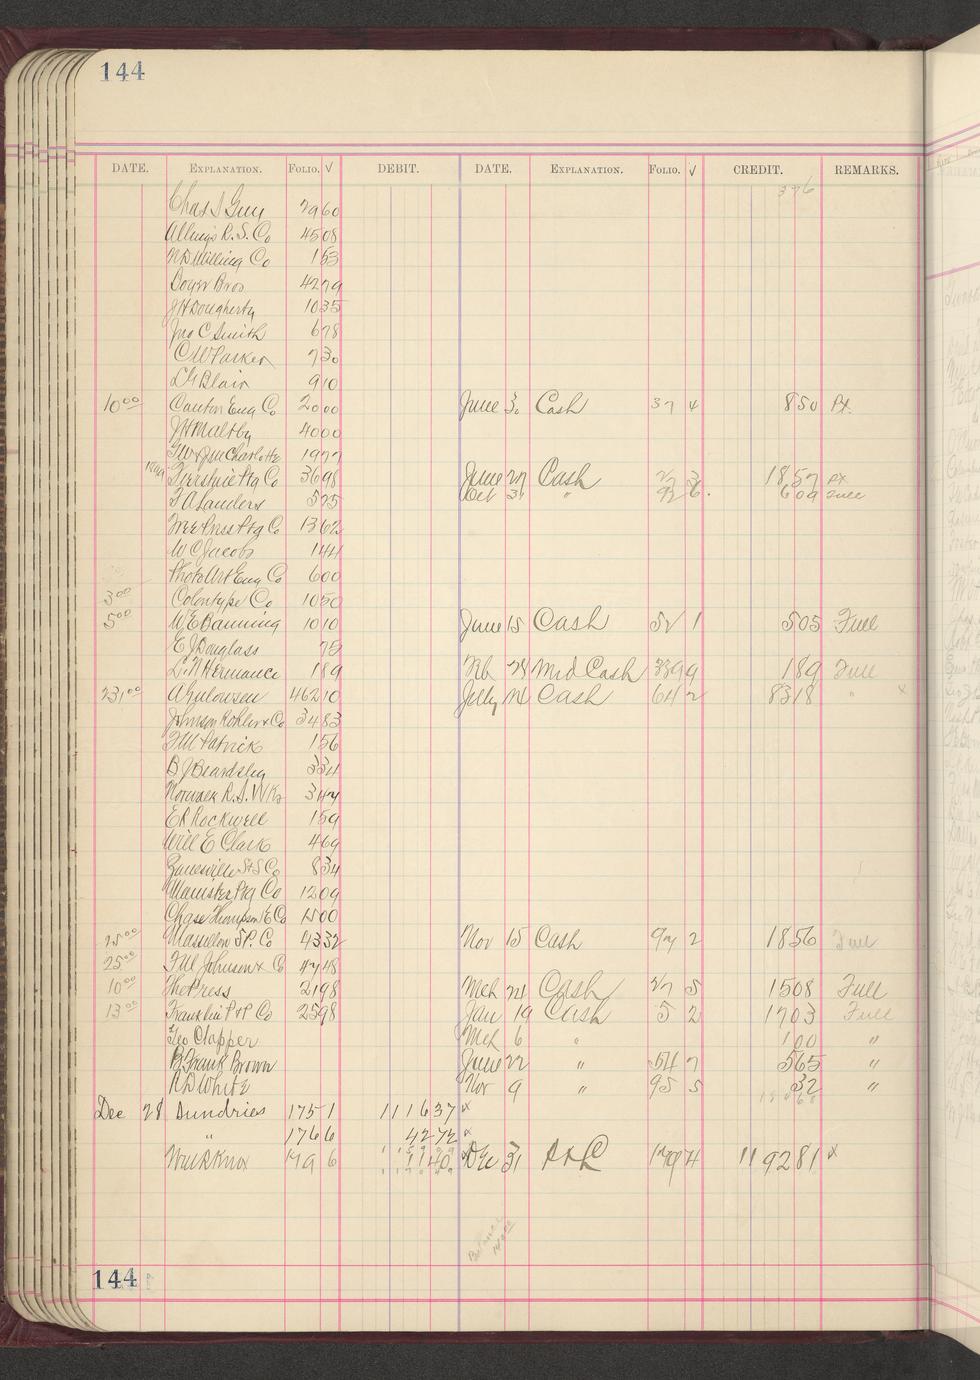 144
DATE. EXPLANATION. FOLIO. √ DEBIT. DATE. EXPLANATION. FOLIO. √ CREDIT. REMARKS.
376
Chas S Guy 2960
R. S. Co 4508
N D Milling Co 153
Bros 4279
J H Dougherty 1035
Jno C Smith 678
C W Parker 730
Blair 910
10 00 Canton Eng Co 2000 June 30 Cash 37 4 850 Pt.
J H Maltby 4000
Charlotte 1977
Ptg Co 3698 June 27 Cash 27 3 1857 Pt
F A Sanders 575 Oct 31 " 92 6. 609 Full
Free Press Ptg Co 1362
W C Jacobs 144
Photo Art Eng Co 600
3 00 Colortype Co 1050
5 00 W E Banning 1010 June 15 Cash 52 1 505 Full
E J Douglass 75
L. N Hermance 189 Feb 28 Mrd Cash 2399 189 Full
231 00 46210 July 14 Cash 64 2 8318 " x
Johnson Kohler & Co 3483
F M Patrick 156
B J Beardsley 334
Norwalk R. S. Wks 347
E R Rockwell 159
Will E Clark 469
Zanesville St S Co 834
Manister Ptg Co 1209
Chase Thompson E Co 1500
25 00 Massillon S. P. Co 4332 Nov 15 Cash 97 2 1856 Full
25 00 F M Johnson & Co 4748
10 00 The Press 2198 Mch 21 Cash 27 5 1508 Full
13 00 Franklin P & P Co 2598 Jan 19 Cash 5 2 1703 Full
Geo Clapper Mch 6 " 100 "
B. Frank Brown June 22 " 54 7 565 "
R D White Nov 9 " 95 5 32 "
Dec 28 Sundries 175 1 111637 x
" 176 6 4272 x
Wm R Knox 179 6 1140 x Dec 31 179 4 119281 x
Balance
144